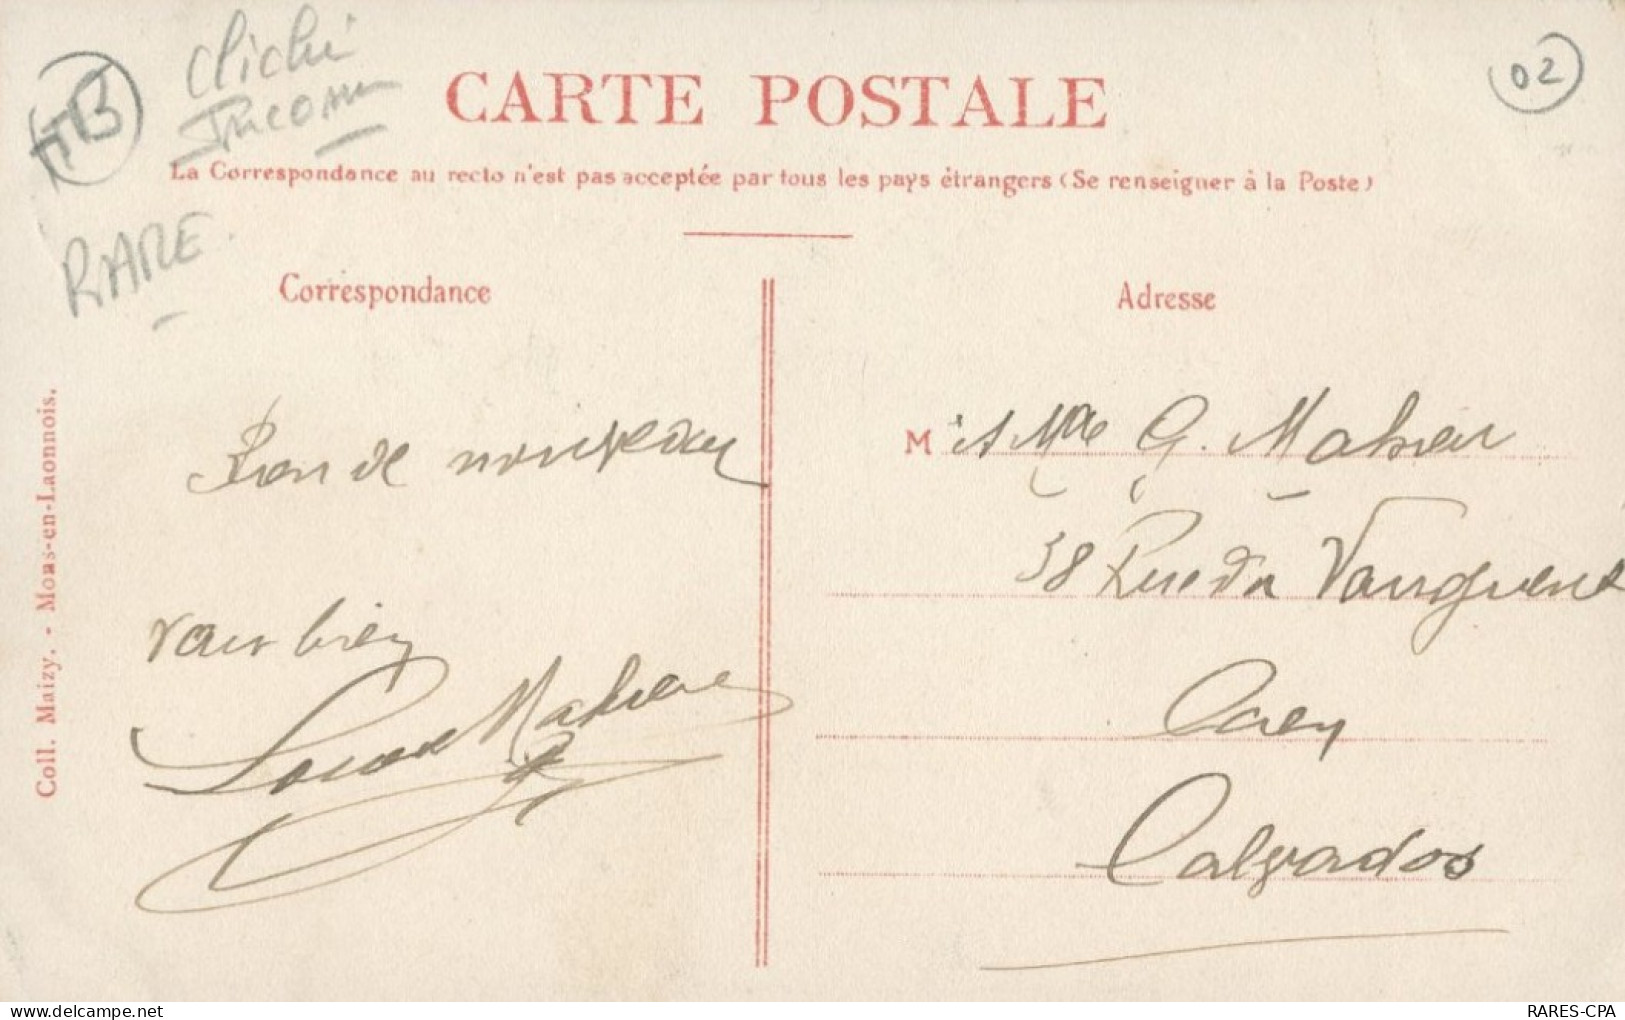 TB
cliché
02
CARTE POSTALE
La Correspondance au recto n'est pas acceptée par tous les pays étrangers (Se renseigner à la Poste)
RARE.
Correspondance
Adresse
Coll. Maizy. - Mons-en-Laonnois.
Rien de nouveau
vais bien
Mahieu
M à Mme G. Mahieu
38 Rue da Vaugueux
Caen
Calvados
delcampe.net
RARES-CPA